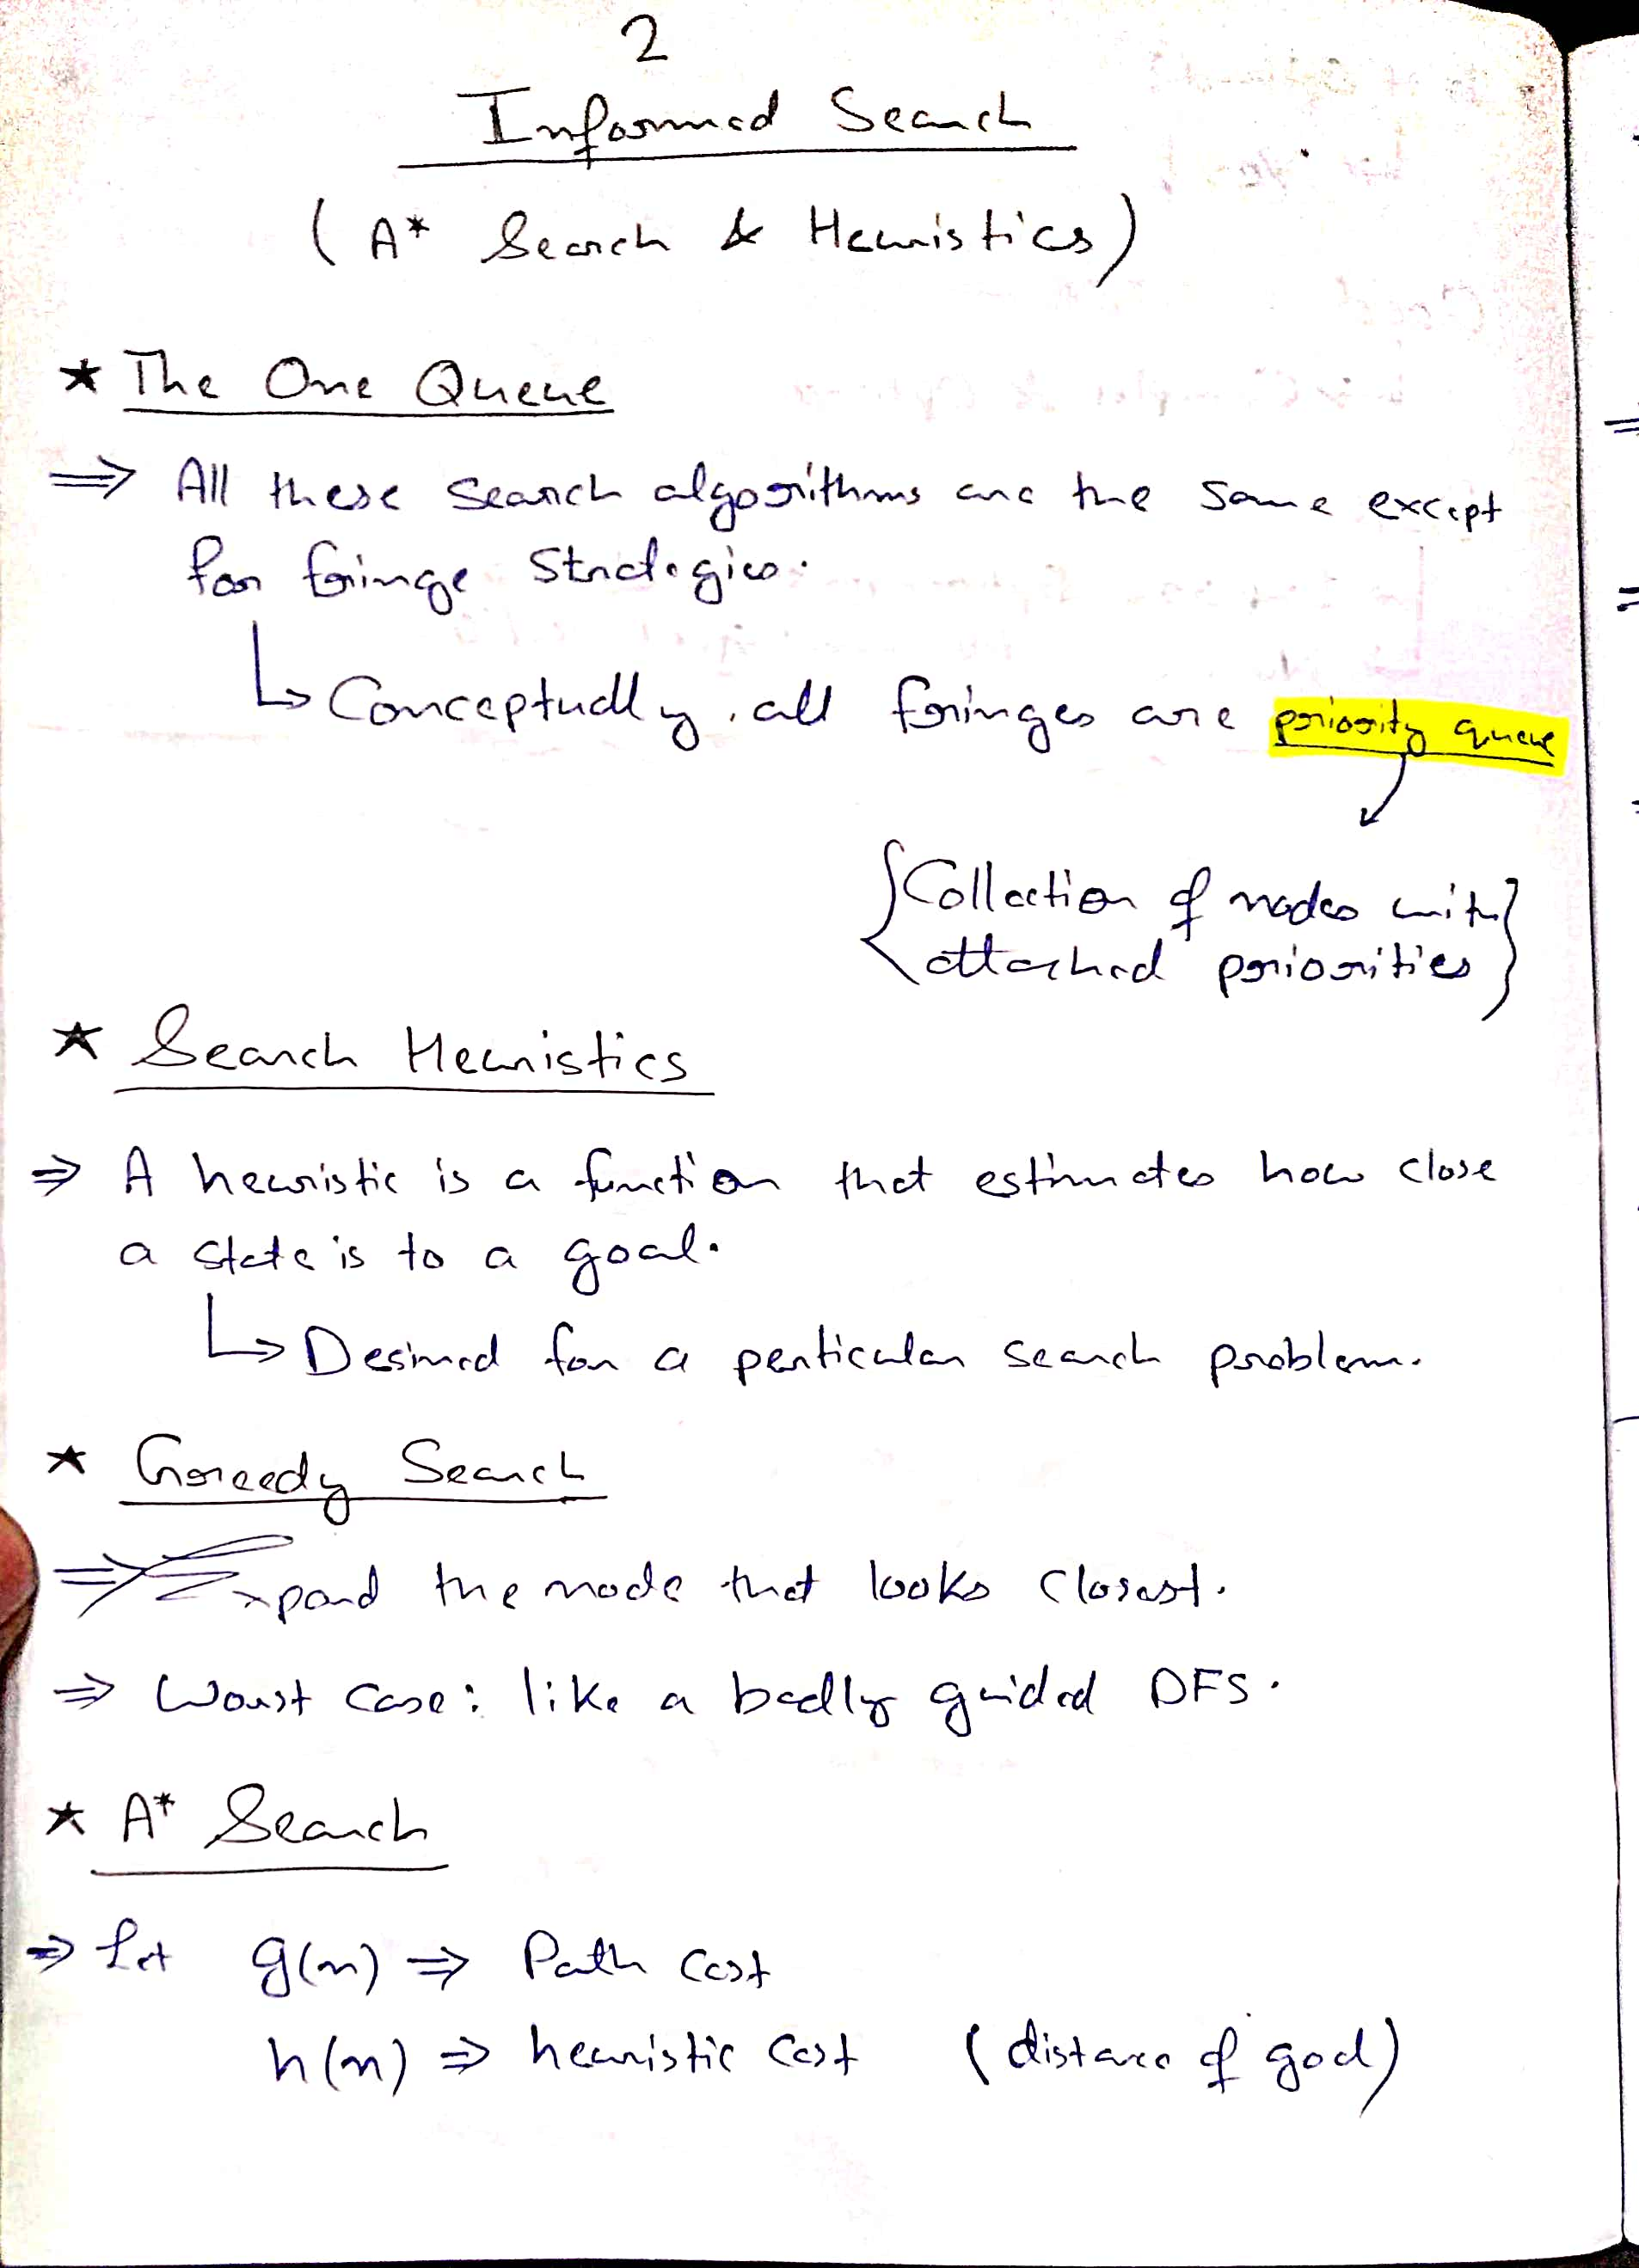 2
Informed Search
( A* Search & Heuristics )
* The One Queue
⇒ All these search algorithms are the same except
for fringe strategies.
↳ Conceptually, all fringes are priority queue
{ Collection of nodes with
attached priorities }
* Search Heuristics
⇒ A heuristic is a function that estimates how close
a state is to a goal.
↳ Desined for a perticular search problem.
* Greedy Search
⇒ Expand the node that looks closest.
⇒ Worst case: like a badly guided DFS.
* A* Search
⇒ Let g(n) ⇒ Path cost
h(n) ⇒ heuristic cost ( distance of goal )